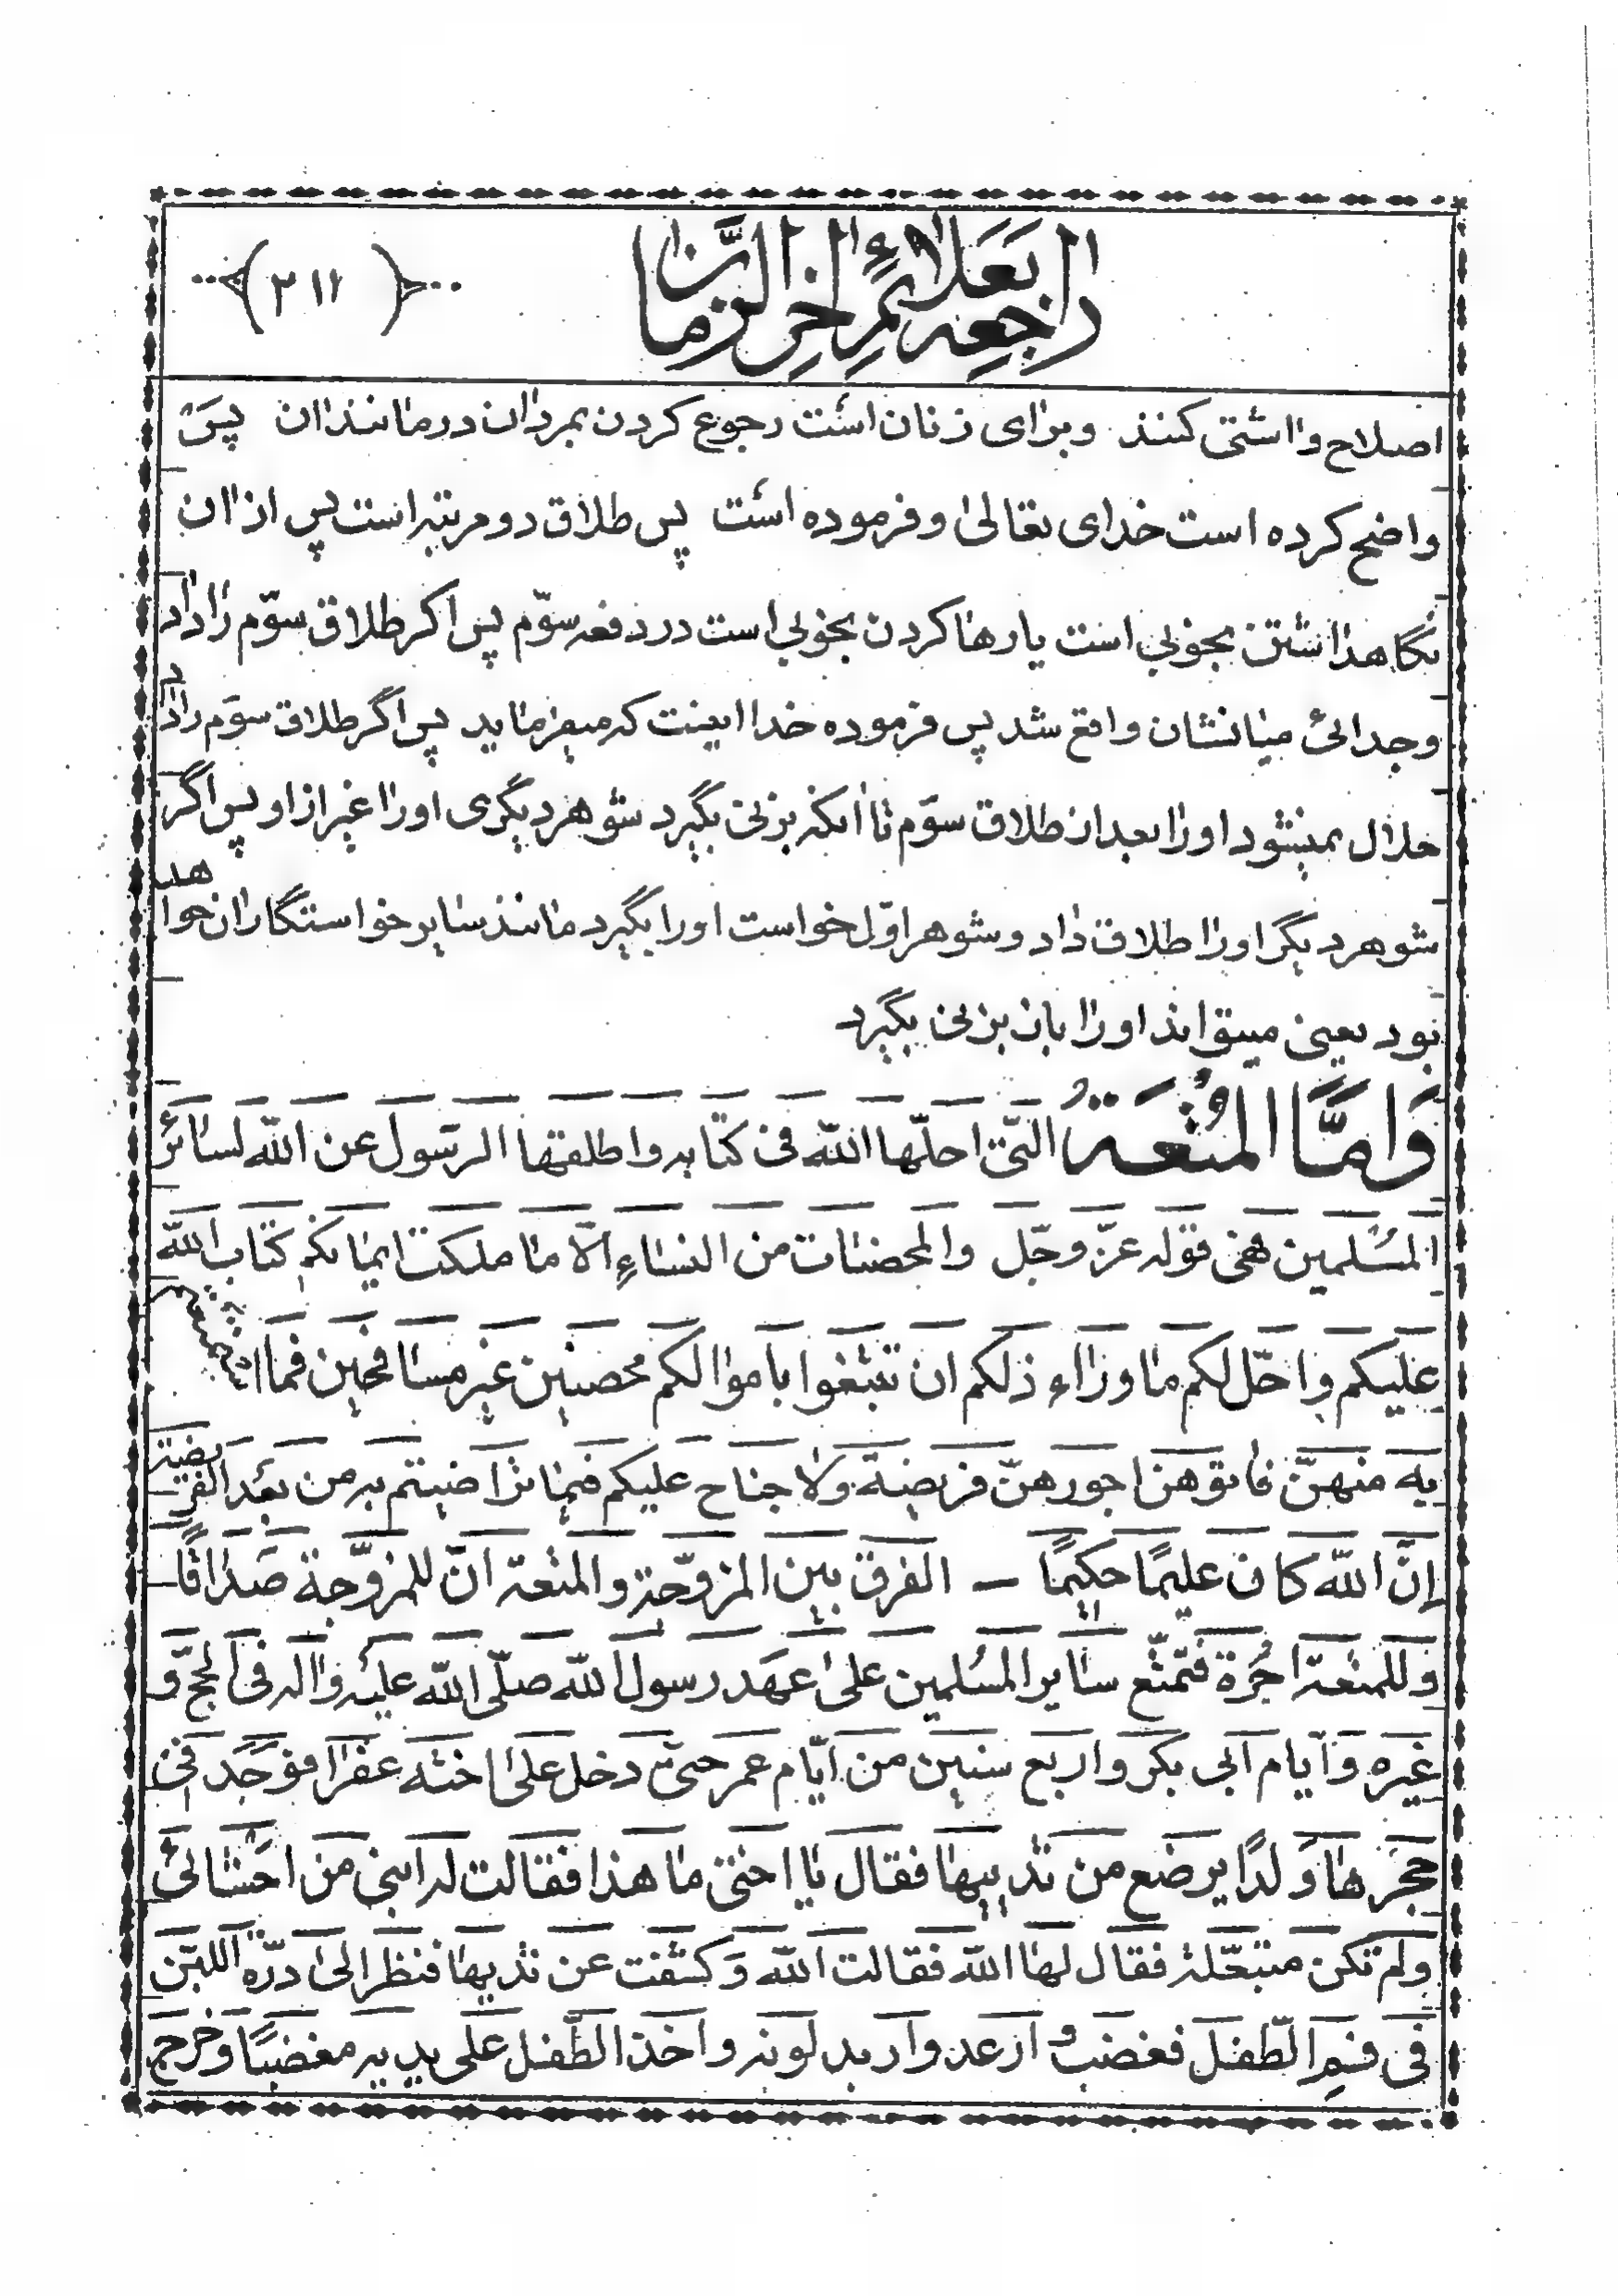 راجعه بعلائم اخر الزمان
﴿ ۲۱۱ ﴾
اصلاح و اشتی کنند و برای زنان است رجوع کردن بمردان در مانند ان پس
واضح کرده است خدای تعالی و فرموده است پس طلاق دو مرتبه است پس از ان
نگاهداشتن بخوبی است یا رها کردن بخوبی است در دفعه سوّم پس اکر طلاق سوّم را داد
و جدائی میانشان واقع شد پس فرموده خدا اینست که میفرماید پس اگر طلاق سوّم را داد
حلال نمیشود او را بعد از طلاق سوّم تا انکه بزنی بگیرد شوهر دیگری او را غیر از او پس اگر
شوهر دیگر او را طلاق داد و شوهر اوّل خواست او را بگیرد مانند سایر خواستگاران خواهد
بود یعنی میتواند او را باز بزنی بگیرد
وَامَّا المُتعَة التّی احلّها اللّه فی کتابه و اطلقها الرّسول عن اللّه لسائر
المُسلمین فهی قوله عزّ و جّل والمحصنات من النساءِ الّا ما ملکت ایمانکم کتاب اللّه
علیکم و احّل لکم ما وراء ذلکم ان تبتغوا باموالکم محصنین غیر مسافحین فما استمتعتم
به منهنّ فاتوهن اجورهنّ فریضة ولا جناح علیکم فیما تراضیتم به من بعد الفریضة
إنّ اللّه کان علیمًا حکیمًا – الفرق بین المزوّجة و المتعة انّ للمزوّجة صَداقًا
و للمتعة اجُرة فتمتّع سایر المسُلمین علی عهَد رسول اللّه صلّی اللّه علیه و اله فی الحجّ و
غیره و ایام ابی بکر و اربع سنین من ایّام عمر حتی دخل علی اخته عفرا فوَجَد فی
حجرها وَلدًا یرضع من ثدییها فقال یا اختی ما هذا فقالت له ابنی من احشائی
و لم تکن متبعّلة فقال لها اللّه فقالت اللّه وَ کشفت عن ثدیها فنظر الی درّه اللبن
فی فمِ الطّفل فغضب و ارعد و اربد لونه و اخذ الطّفل علی یدیه مغضبًا و خرج